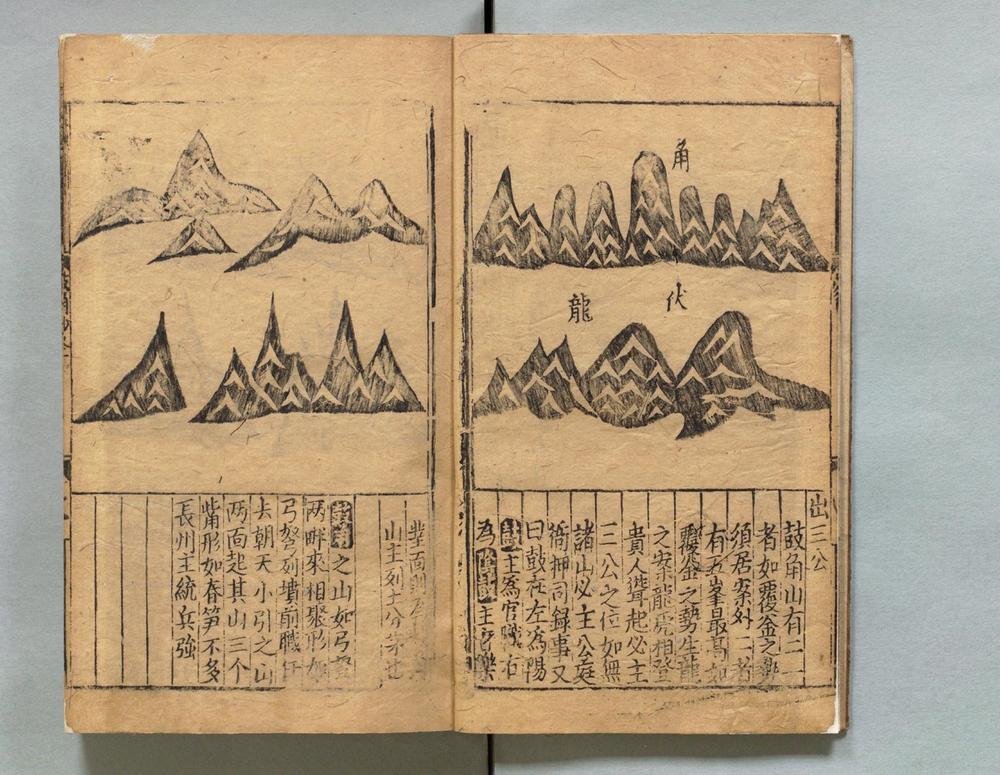 角
伏
龍
出三公
鼓角山有二一
者如覆釜之勢
須居案外二者
有五峯最高如
覆釜之勢生龍
之案龍虎相登
貴人聳起必主
三公之位如無
諸山必主公庭
衙押司録事又
曰鼓在左為陽
主為官職右
為主官樂
山主列土分茅
之山如弓弩
两畔來相聚形如
弓弩列墳前職任
去朝天小引之山
两面起其山三个
觜形如春笋不多
長州主統兵強